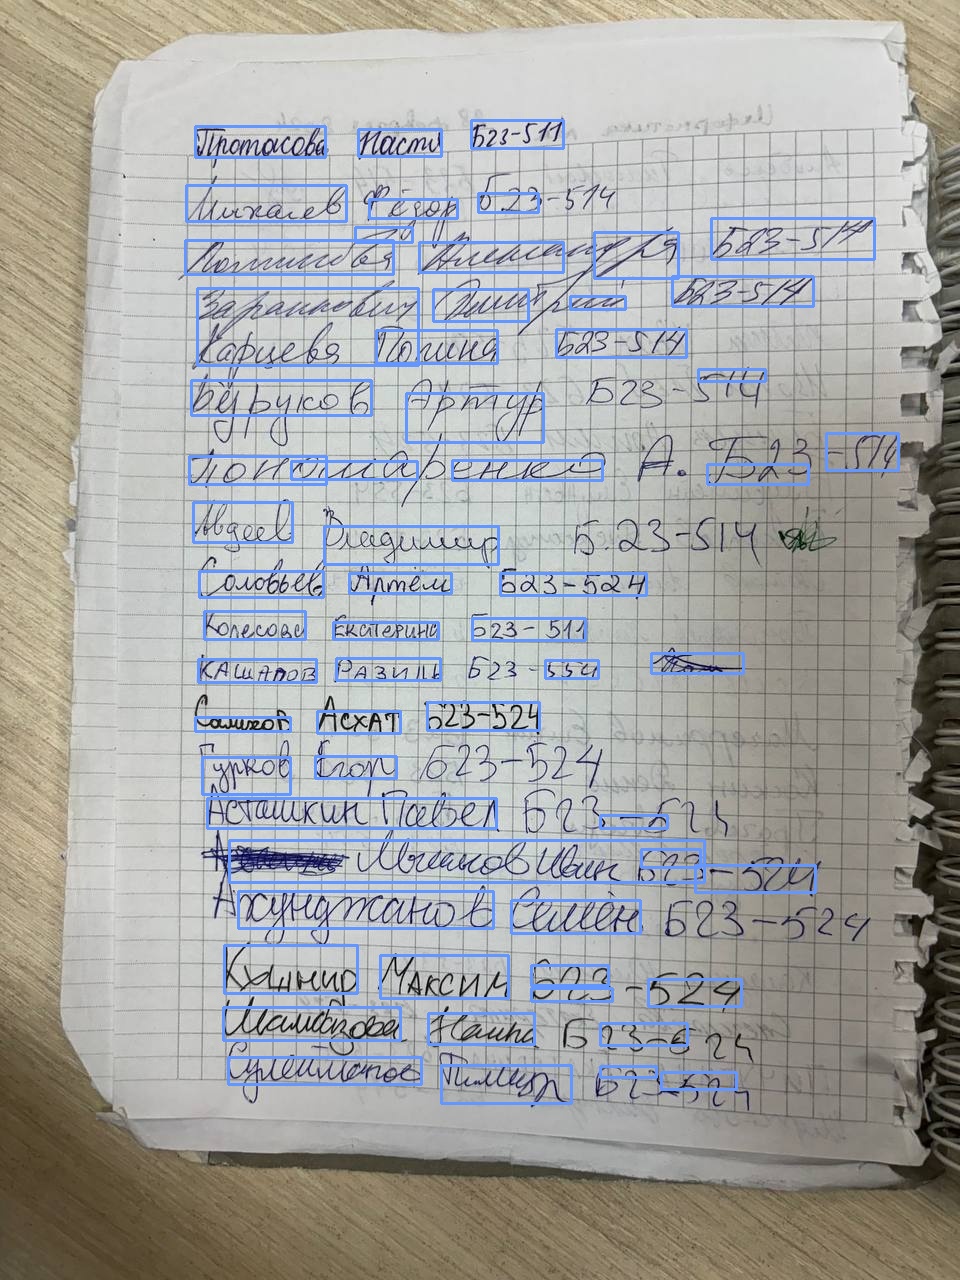 Протасова Настя Б23-511
Михалев Фёдор Б23-514
Александра Б23-514
Заранкович Дмитрий Б23-514
Карцева Полина Б23-514
Буруков Артур Б23-514
Пономаренко А. Б23-514
Авдеев Владимир Б.23-514
Соловьев Артём Б23-524
Колесова Екатерина Б23-511
КАШАПОВ РАЗИЛЬ Б23-554
Асхат Б23-524
Гурков Егор Б23-524
Асташкин Павел Б23-524
Иван Б23-524
Ахунджанов Семён Б23-524
Максим Б23-524
Б23-524
Сулейманов Тимур Б23-524